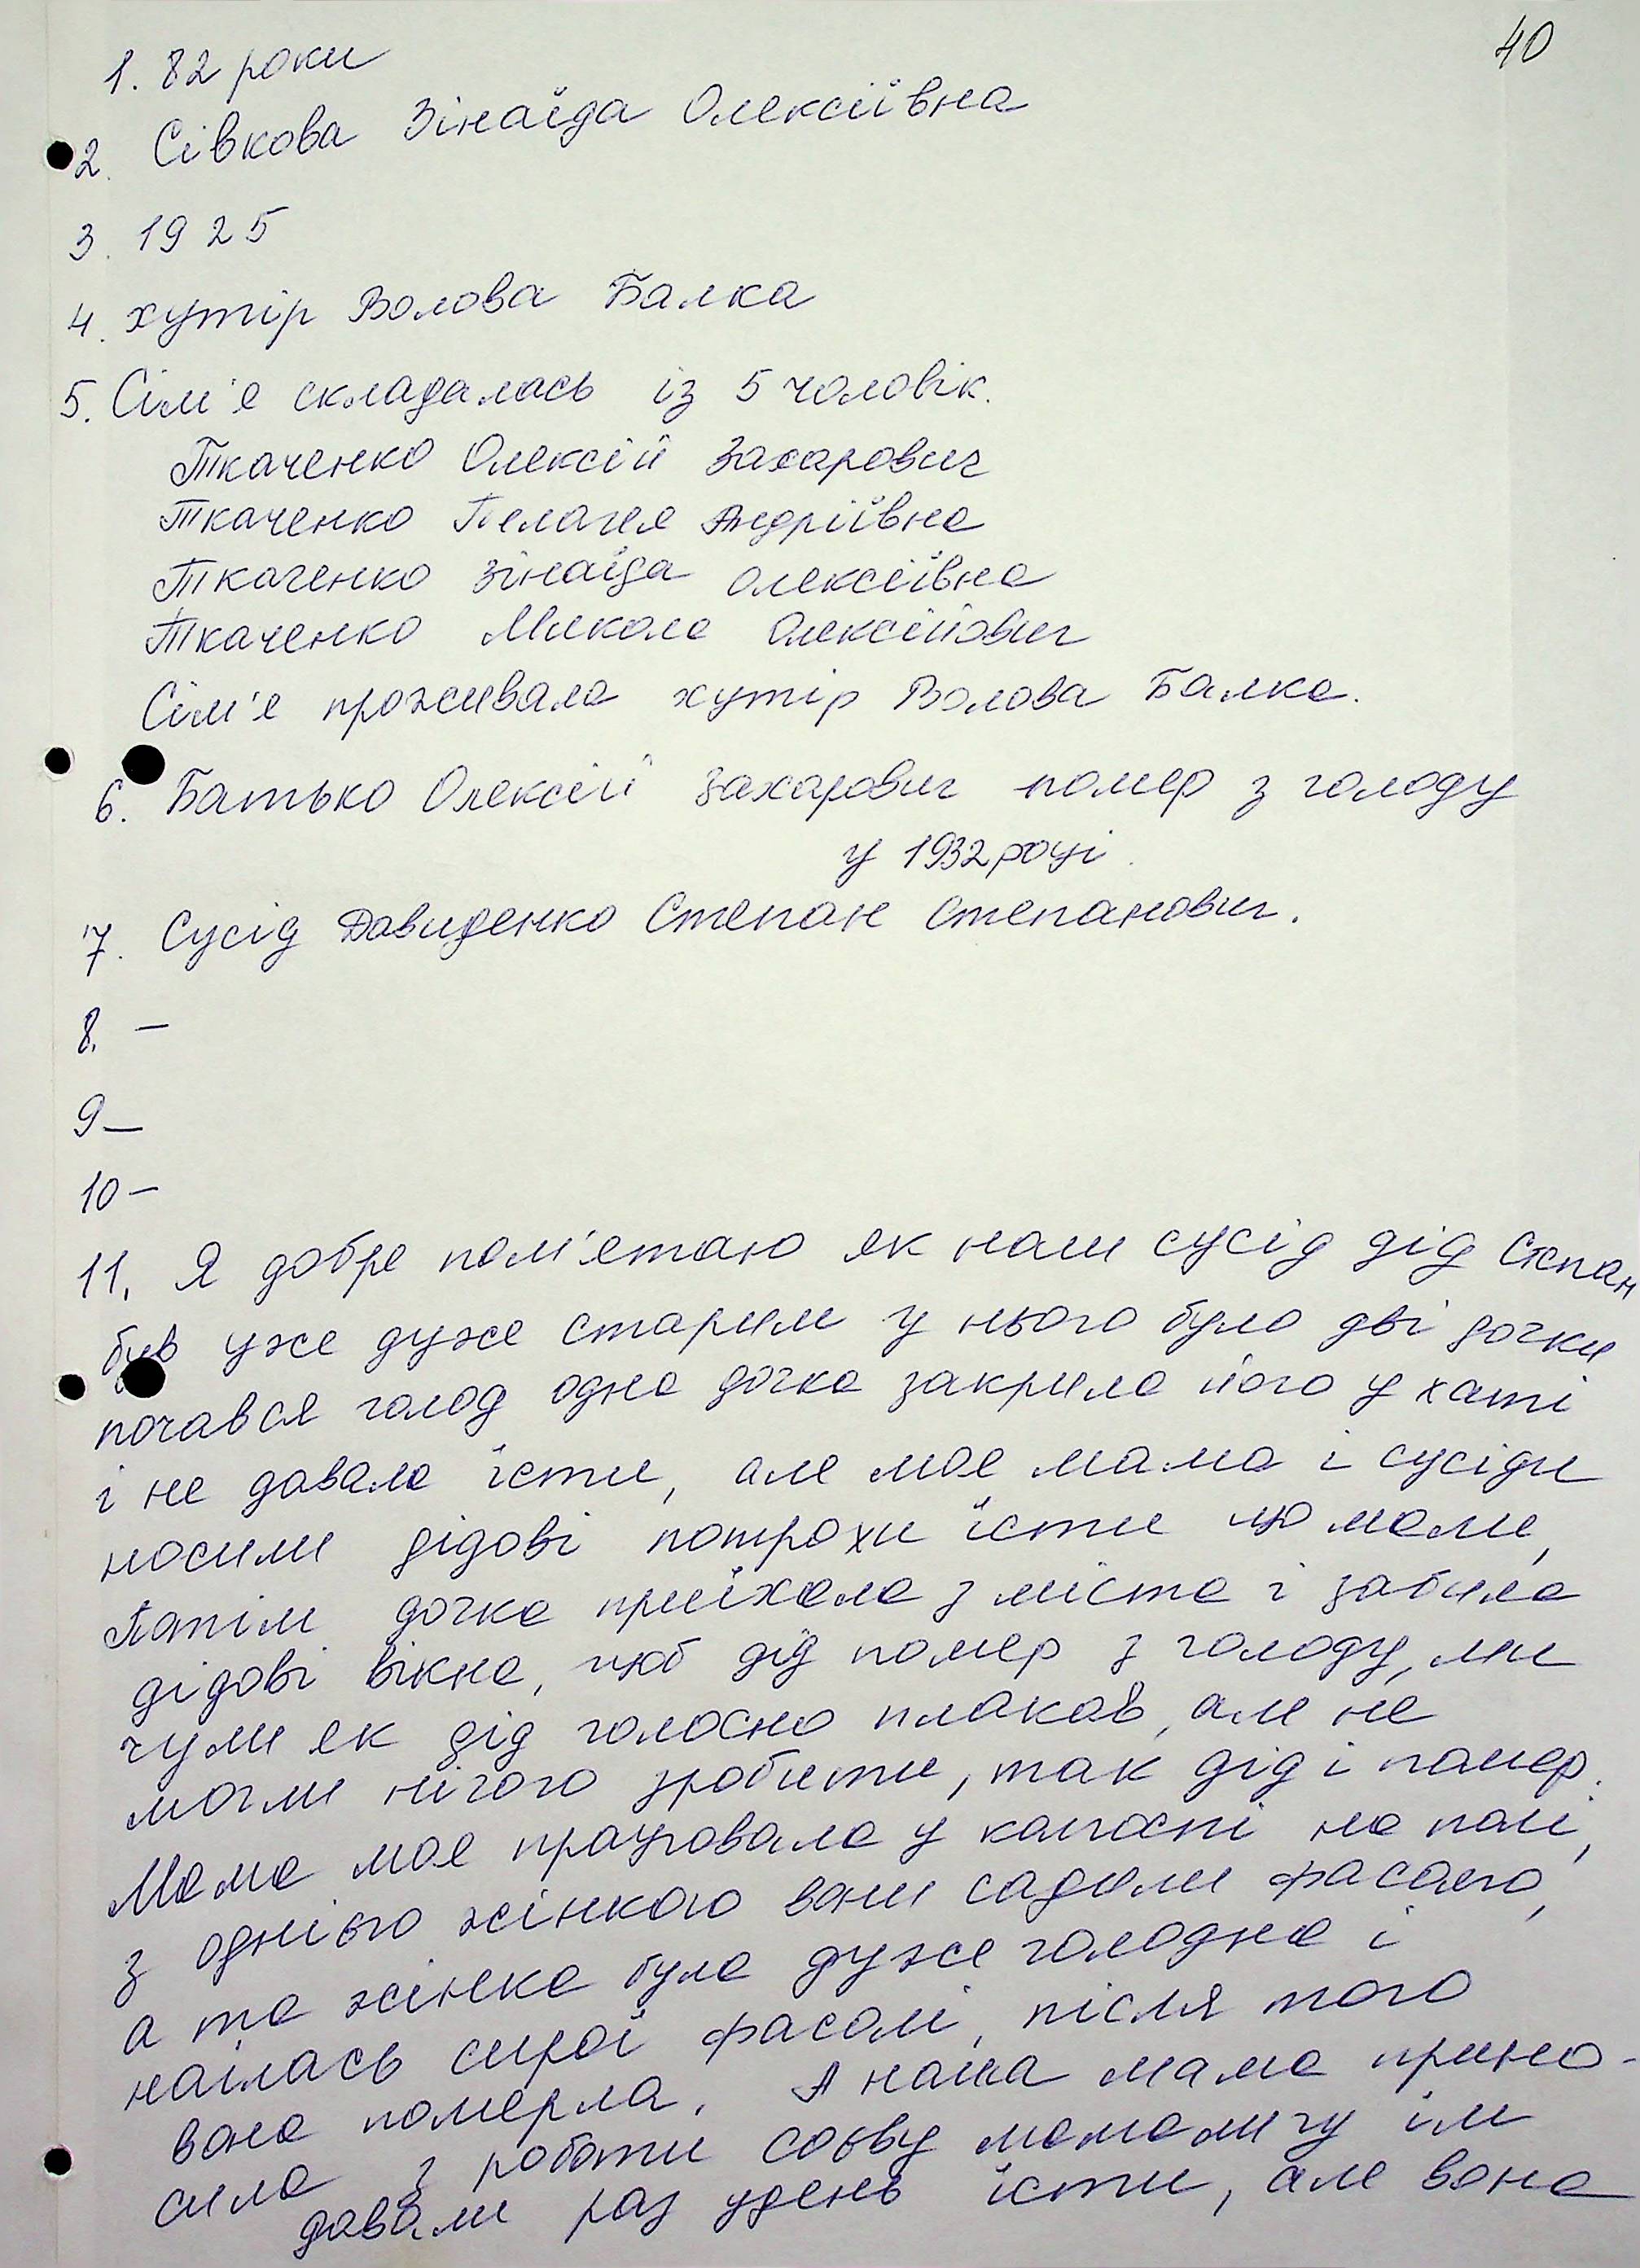 40
1. 82 роки
2. Сівкова Зінаїда Олексіївна
3. 1925
4. хутір Волова Балка
5. Сім'я складалась із 5 чоловік.
Ткаченко Олексій Захарович
Ткаченко Пелагея Андріївна
Ткаченко Зінаїда Олексіївна
Ткаченко Микола Олексійович
Сім'я проживала хутір Волова Балка.
6. Батько Олексій Захарович помер з голоду
у 1932 році.
7. Сусід Давиденко Степан Степанович.
8. –
9 –
10 –
11. Я добре пам'ятаю як наш сусід дід Степан
був уже дуже старим у нього було дві дочки
почався голод одна дочка закрила його у хаті
і не давала їсти, але моя мама і сусіди
носили дідові потрохи їсти що мали,
Потім дочка приїхала з міста і забила
дідові вікна, щоб дід помер з голоду, ми
чули як дід голосно плакав, але не
могли нічого зробити, так дід і помер.
Мама моя працювала у колгоспі на полі,
з однією жінкою вони садили фасолю,
а та жінка була дуже голодна і
наїлась сирої фасолі, після того
вона померла. А наша мама прино-
сила з роботи соєву мамалигу їм
давали раз удень їсти, але вона